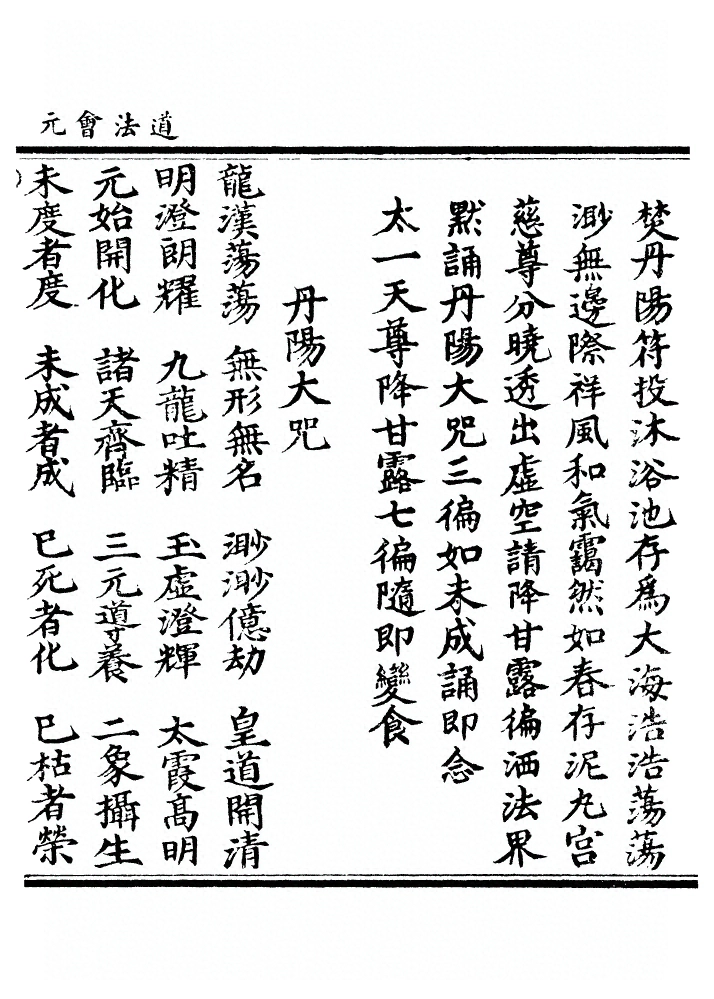 道法會元
焚丹陽符投沐浴池存爲大海浩浩蕩蕩
渺無邊際祥風和氣靄然如春存泥丸宮
慈尊分曉透出虛空請降甘露徧洒法界
默誦丹陽大咒三徧如未成誦即念
太一天尊降甘露七徧隨即變食
丹陽大咒
龍漢蕩蕩 無形無名 渺渺億劫 皇道開清
明澄朗耀 九龍吐精 玉虛澄輝 太霞高明
元始開化 諸天齊臨 三元導養 二象攝生
未度者度 未成者成 已死者化 已枯者榮